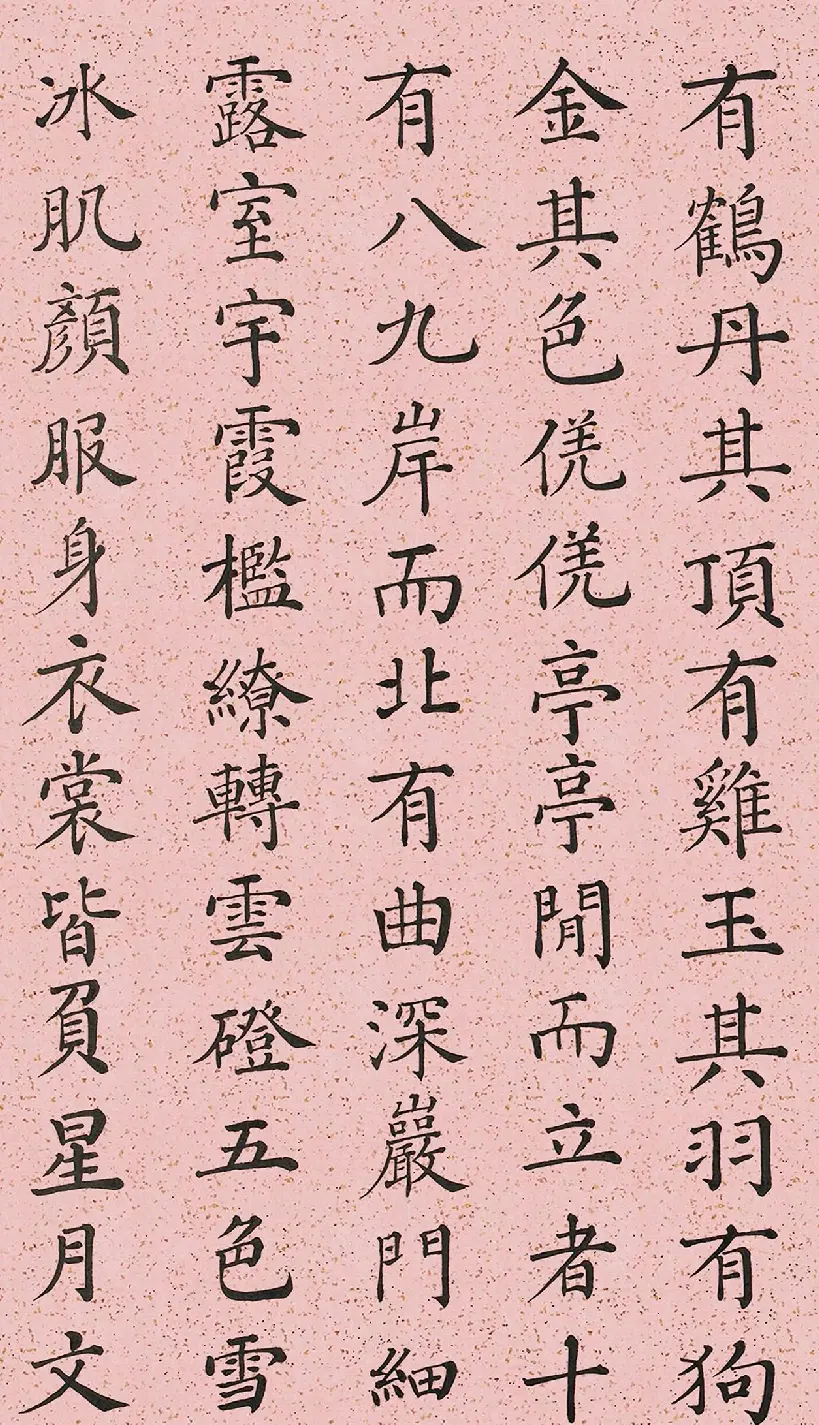 有鶴丹其頂有雞玉其羽有狗
金其色亭亭閒而立者十
有八九岸而北有曲深巖門細
露室宇霞檻繚轉雲磴五色雪
冰肌顏服身衣裳皆負星月文